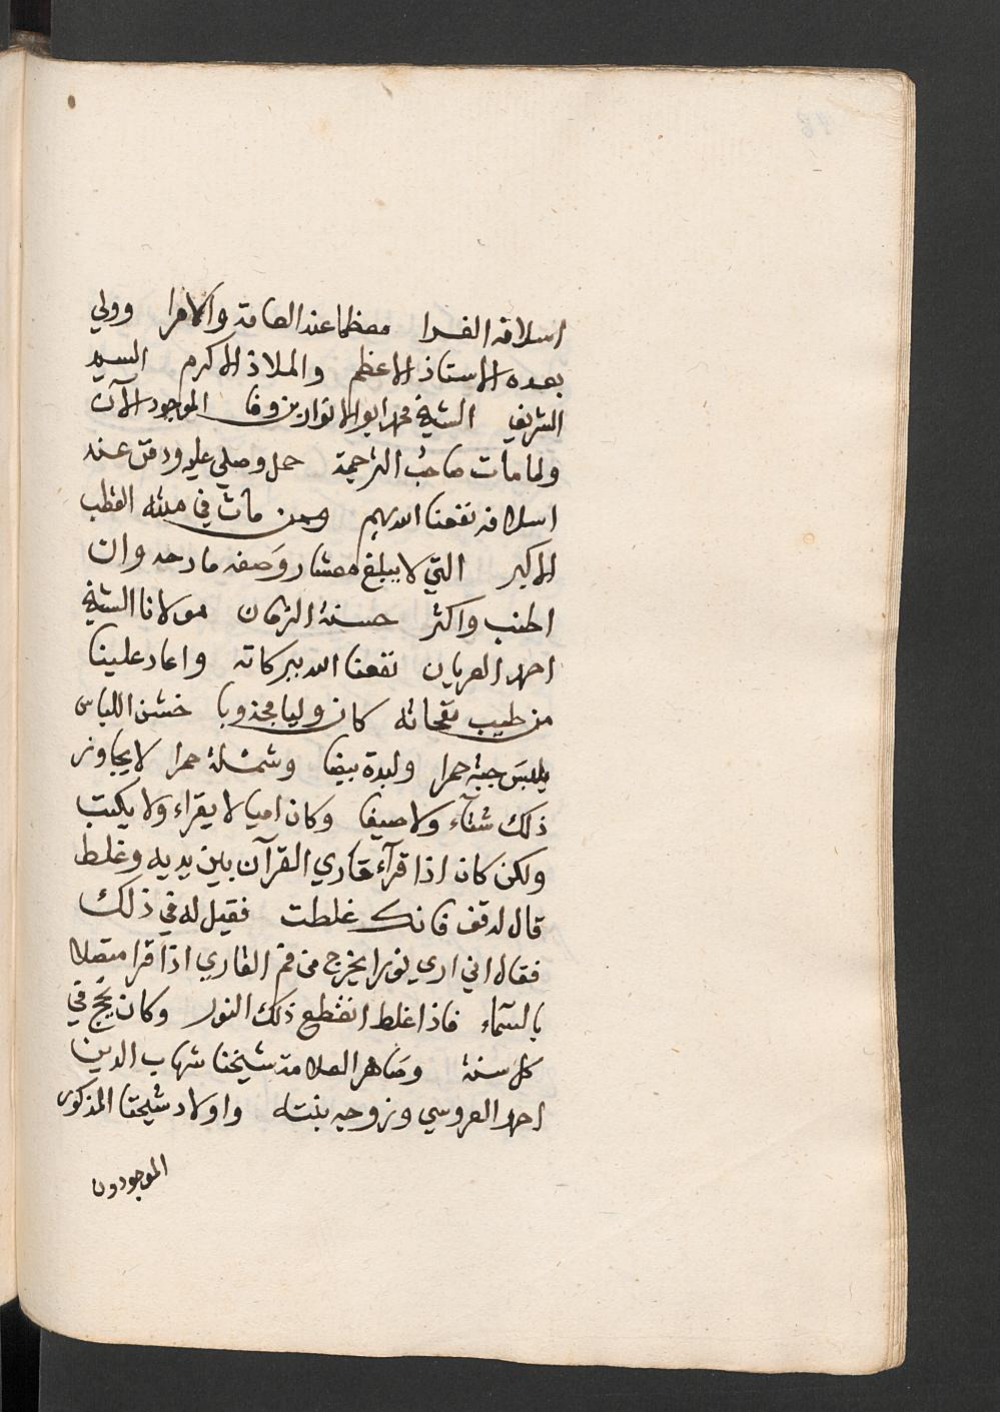 اسلافه الغرا معظما عند العامة والامرا وولي
بعده الاستاذ الاعظم والملاذ الاكرم السيد
الشريف الشيخ محمد ابو الانوار بن وفا الموجود الآن
ولما مات صاحب الترجمة حمل وصلي عليه ودفن عند
اسلافه نفعنا الله بهم ومن مات في هذه القطب
الاكبر التي لا يبلغ معشار وصفه مادحه وان
اطنب واكثر حسنة الزمان مولانا الشيخ
احمد العريان نفعنا الله ببركاته واعاد علينا
من طيب نفحاته كان وليا مجذوبا خشن اللباس
يلبس جبة حمرا ولبدة بيضا وشملة حمرا لا يجاوز
ذلك شتآء ولا صيفا وكان اميا لا يقراء ولا يكتب
ولكن كان اذا قرآء قاري القرآن بين يديه وغلط
قال له قف فانك غلطت فقيل له في ذلك
فقال اني ارى نورا يخرج من فم القاري اذا قرا متصلا
بالسمآء فاذا غلط انقطع ذلك النور وكان يحج في
كل سنة وصاهر العلامة شيخنا شهاب الدين
احمد العروسي وزوجه بنته واولاد شيخنا المذكور
الموجودون